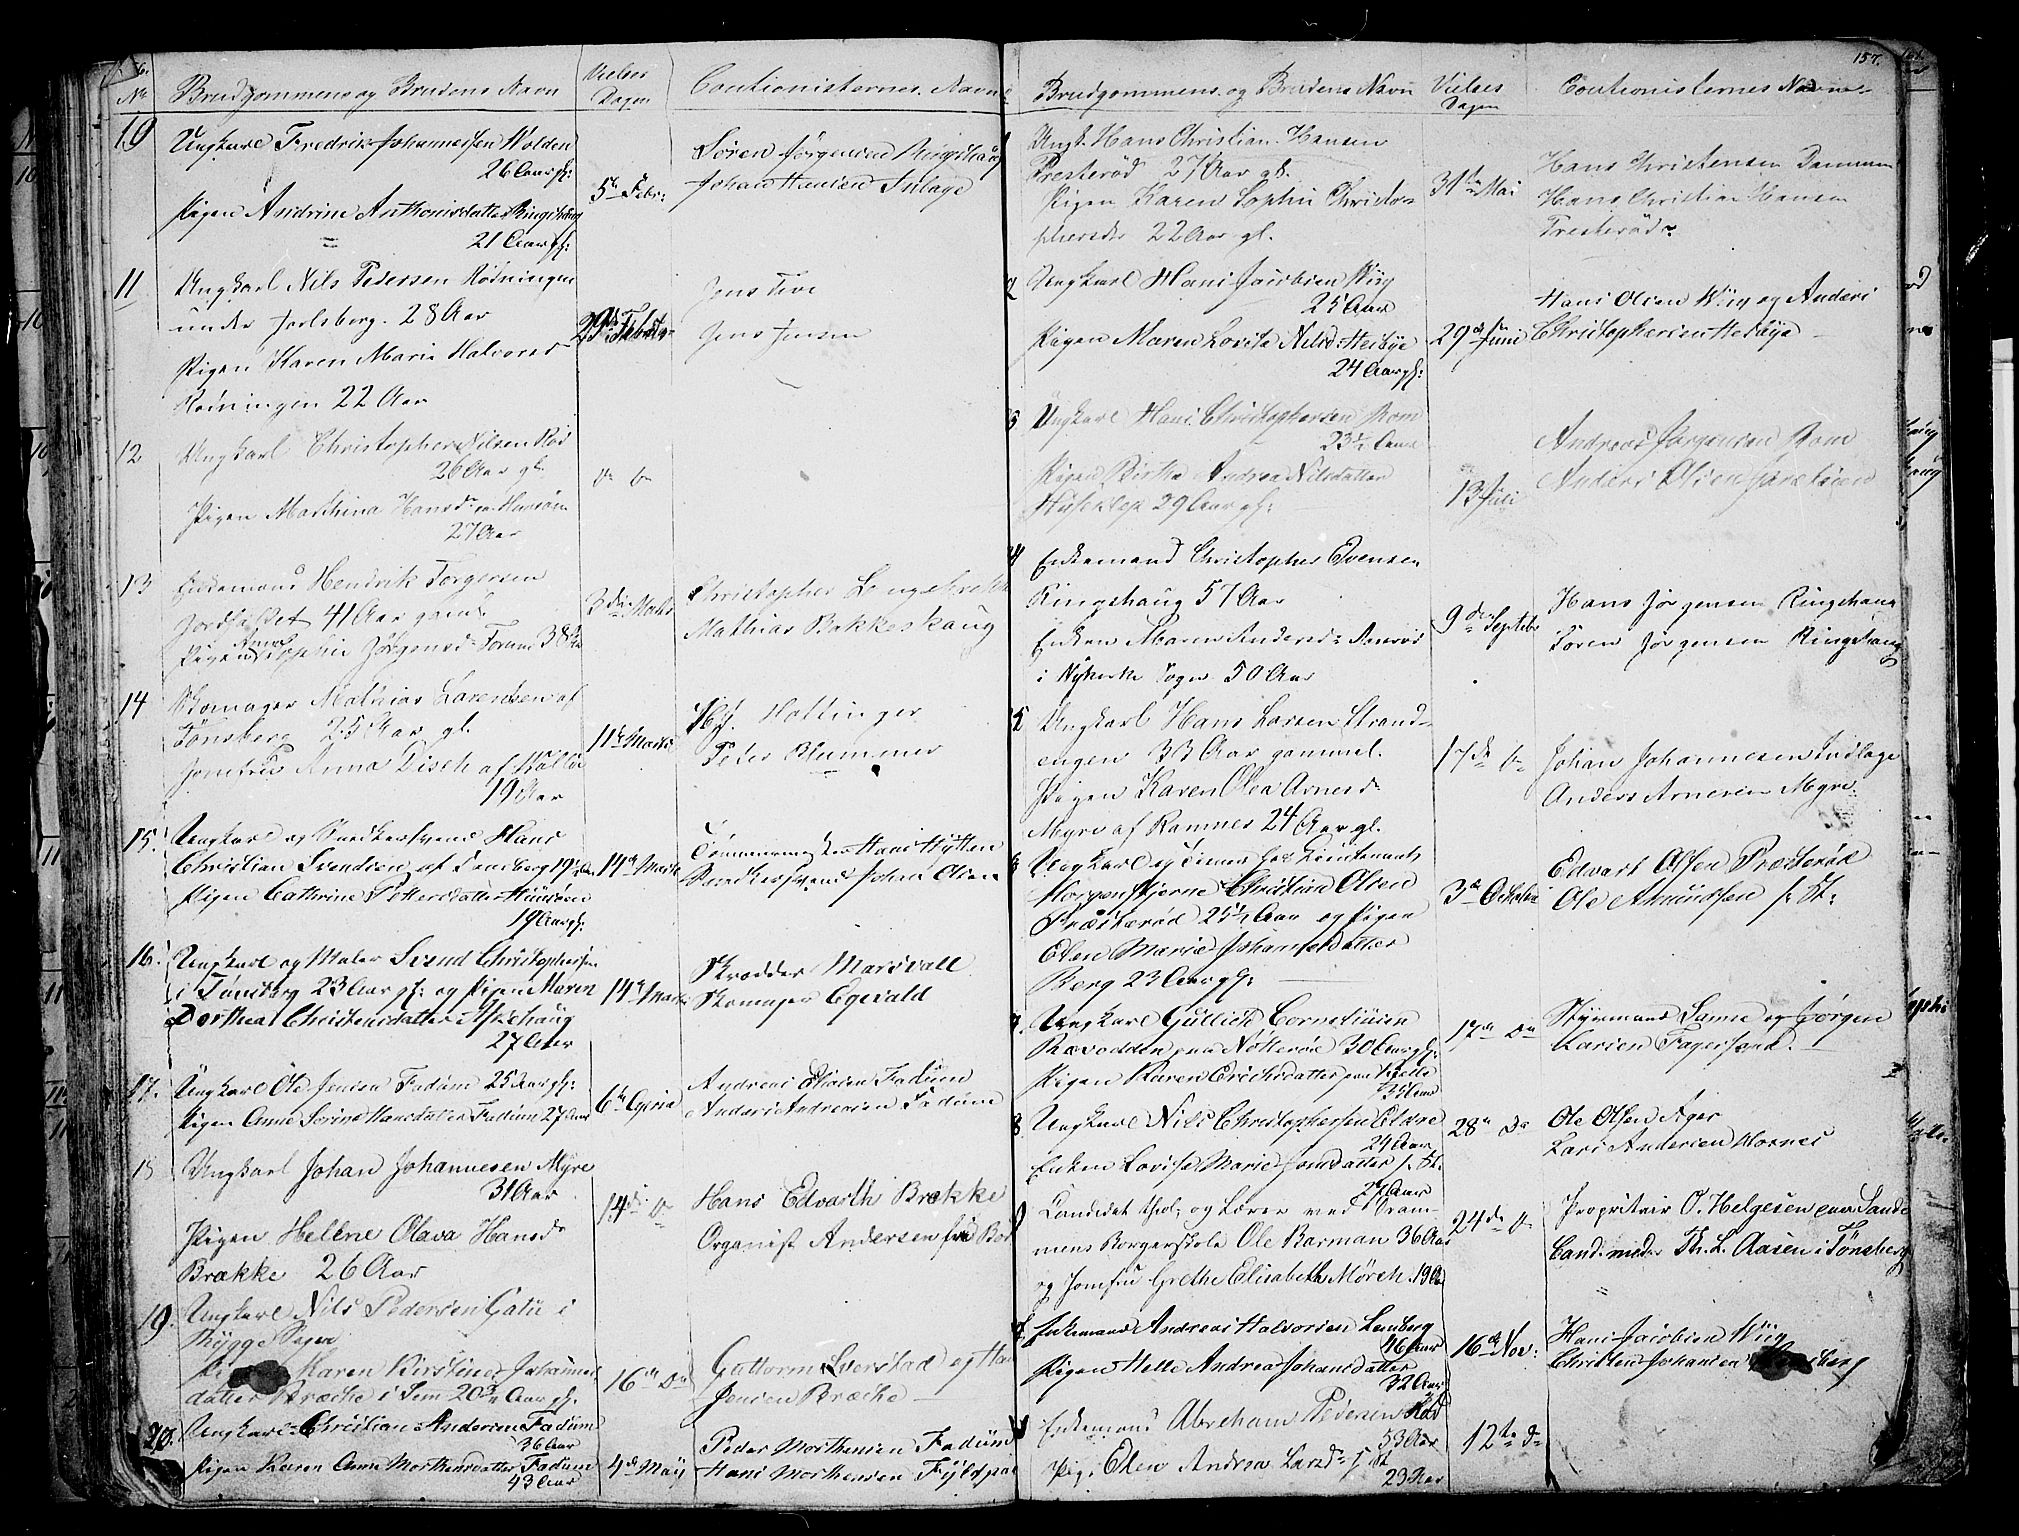 No
Brudgommens og Brudens Navn
Vielses
Dagen
Coutionisternes Navne
10
Ungkarl Fredrik Johannessen Wolden
26 Aar gl:
Pigen Andrine Anthonisdatter Ringshaug
21 Aar gl:
5te Febr:
Søren Jørgensen Ringshaug
Johan Hansen Inlage
11
Ungkarl Nils Pedersen Rødningen
under Jarlsberg. 28 Aar
Pigen Karen Marie Halvorsd
Rødningen 22 Aar
29de Februar
Jens Tive
Jens Jensen
12
Ungkarl Christopher Nilsen Rød
26 Aar gl.
Pigen Mathina Hansd
27 Aar
13
Enkemand Hendrik Torgersen
41 Aar gammel
Pigen Anne Sophie Jørgensd Forum 38 Aar
3die Marts
Christopher
Mathias Bakkeskaug
14
Skomager Mathias Larentsen af
Tønsberg 25 Aar gl.
Jomfrue Anna Disch af
19 Aar
11te Marts
Hf. Hottinger
Peter Blummer
15.
Ungkarl og Snedkersvend Hans
Christian Svendsen af Tønsberg 19
Pigen Cathrine Pettersdatter
19 Aar gl:
14de Marts
Tømmermester Hans Hytten
Snedkersvend Johan Olsen
16.
Ungkarl og Maler Svend Christophersen
i Tønsberg 23 Aar gl: og Pigen Maren
Dorthea Christensdatter Askehaug
27 Aar
14de Marts
Skrædder Marsvall
Skomager Egevald
17.
Ungkarl Ole Jensen Fadum 25 Aar gl:
Pigen Anne Sorine Hansdatter Fadum 27 Aar
6te
Andreas Olsen Fadum
Anders Andreasen Fadum
18
Ungkarl Johan Johannesen Myre
31 Aar
Pigen Hellene Olava Hansd
Brække 26 Aar
14de
Hans Edvarth Brække
Organist Andersen
19.
Ungkarl Nils Pedersen Gatu i
Rygge Sogn
Karen Kirstine Johannes
datter Bræche i Sem 20 Aar gl.
16de
Guttorm
Jensen Bræche
20.
Ungkarl Christian Andersen Fadum
36 Aar
Pigen Karen Anne Morthensdatter Fadum
43 Aar
4de Maij
Peder Morthensen Fadum
Hans Morthensen
157.
Brudgommens og Brudens Navn
Vielses
Dagen
Coutionisternes Navne
1
Ungk. Hans Christian Hansen
Presterød 27 Aar gl.
Pigen Karen Sophie Christo-
phersdr 22 Aar gl.
31te Mai
Hans Christensen Dammen
Hans Christian Hansen
Presterød
2
Ungkarl Hans Jacobsen Wiig
25 Aar
Pigen Maren Lovise Nilsd: Hesbye
24 Aar gl:
29de Juni
Hans Olsen Wiig og Anders
Christophersen Hesbye
3
Ungkarl Hans Christophersen Rom
23½ Aar
Pigen Birthe Andrea Nilsdatter
Huseklep 29 Aar gl:
13 Juli
Andreas Jørgensen Rom
Anders Olsen
4
Enkemand Christopher Evensen
Ringshaug 57 Aar
Enken Maren Andersd
i Nykirke Sogn 50 Aar
9de Septebr
Hans Jørgensen Ringshaug
Søren Jørgensen Ringshaug
5
Ungkarl Hans Larsen Strand-
engen 33 Aar gammel.
Pigen Karen Olea Arnesd
Myre af Ramnes 24 Aar gl.
17de
Johan Johannesen Indlage
Anders Arnesen Myre
6
Ungkarl og Tiener hos Lieutenant
Morgenstjerne Christian Olsen
Præsterød 25½ Aar og Pigen
Elen Marie Johannesdatter
Berg 23 Aar gl:
3de Octobr
Edvart Olsen Præsterød
Ole Amundsen s: St:
7.
Ungkarl Gullich Cornelinsen
Ravodden paa Nøtterøe 30 Aar gl:
Pigen Karen Erichsdatter paa
35 Aar
17de Do
Styrmand Sanne og Jørgen
Larsen Fagersand.
8
Ungkarl Nils Christophersen Eldre
24 Aar
Enken Lovise Marie Jonsdatter s. St.
29 Aar
28de Do
Ole Olsen Ager
Lars Andersen Hornes
9
Candidat theol: og Lærer ved Dram-
mens Borgerskole Ole Barman 36 Aar
og Jomfru Grethe Elisabeth Mørch 19 Aar
24de
Propritair O. Helgesen paa Sande
Cand: med: Th. L. Aasen i Tønsberg
Enkemand Andreas Halvorsen Lensberg
46 Aar
Pigen Helle Andrea Johansdatter
32 Aar
16de Nov:
Hans Jacobsen Wiig
Christen Johansen
Enkemand Abraham Pedersen Rød
53 Aar
Pig. Elen Andrea Larsd s. St
23 Aar
12te